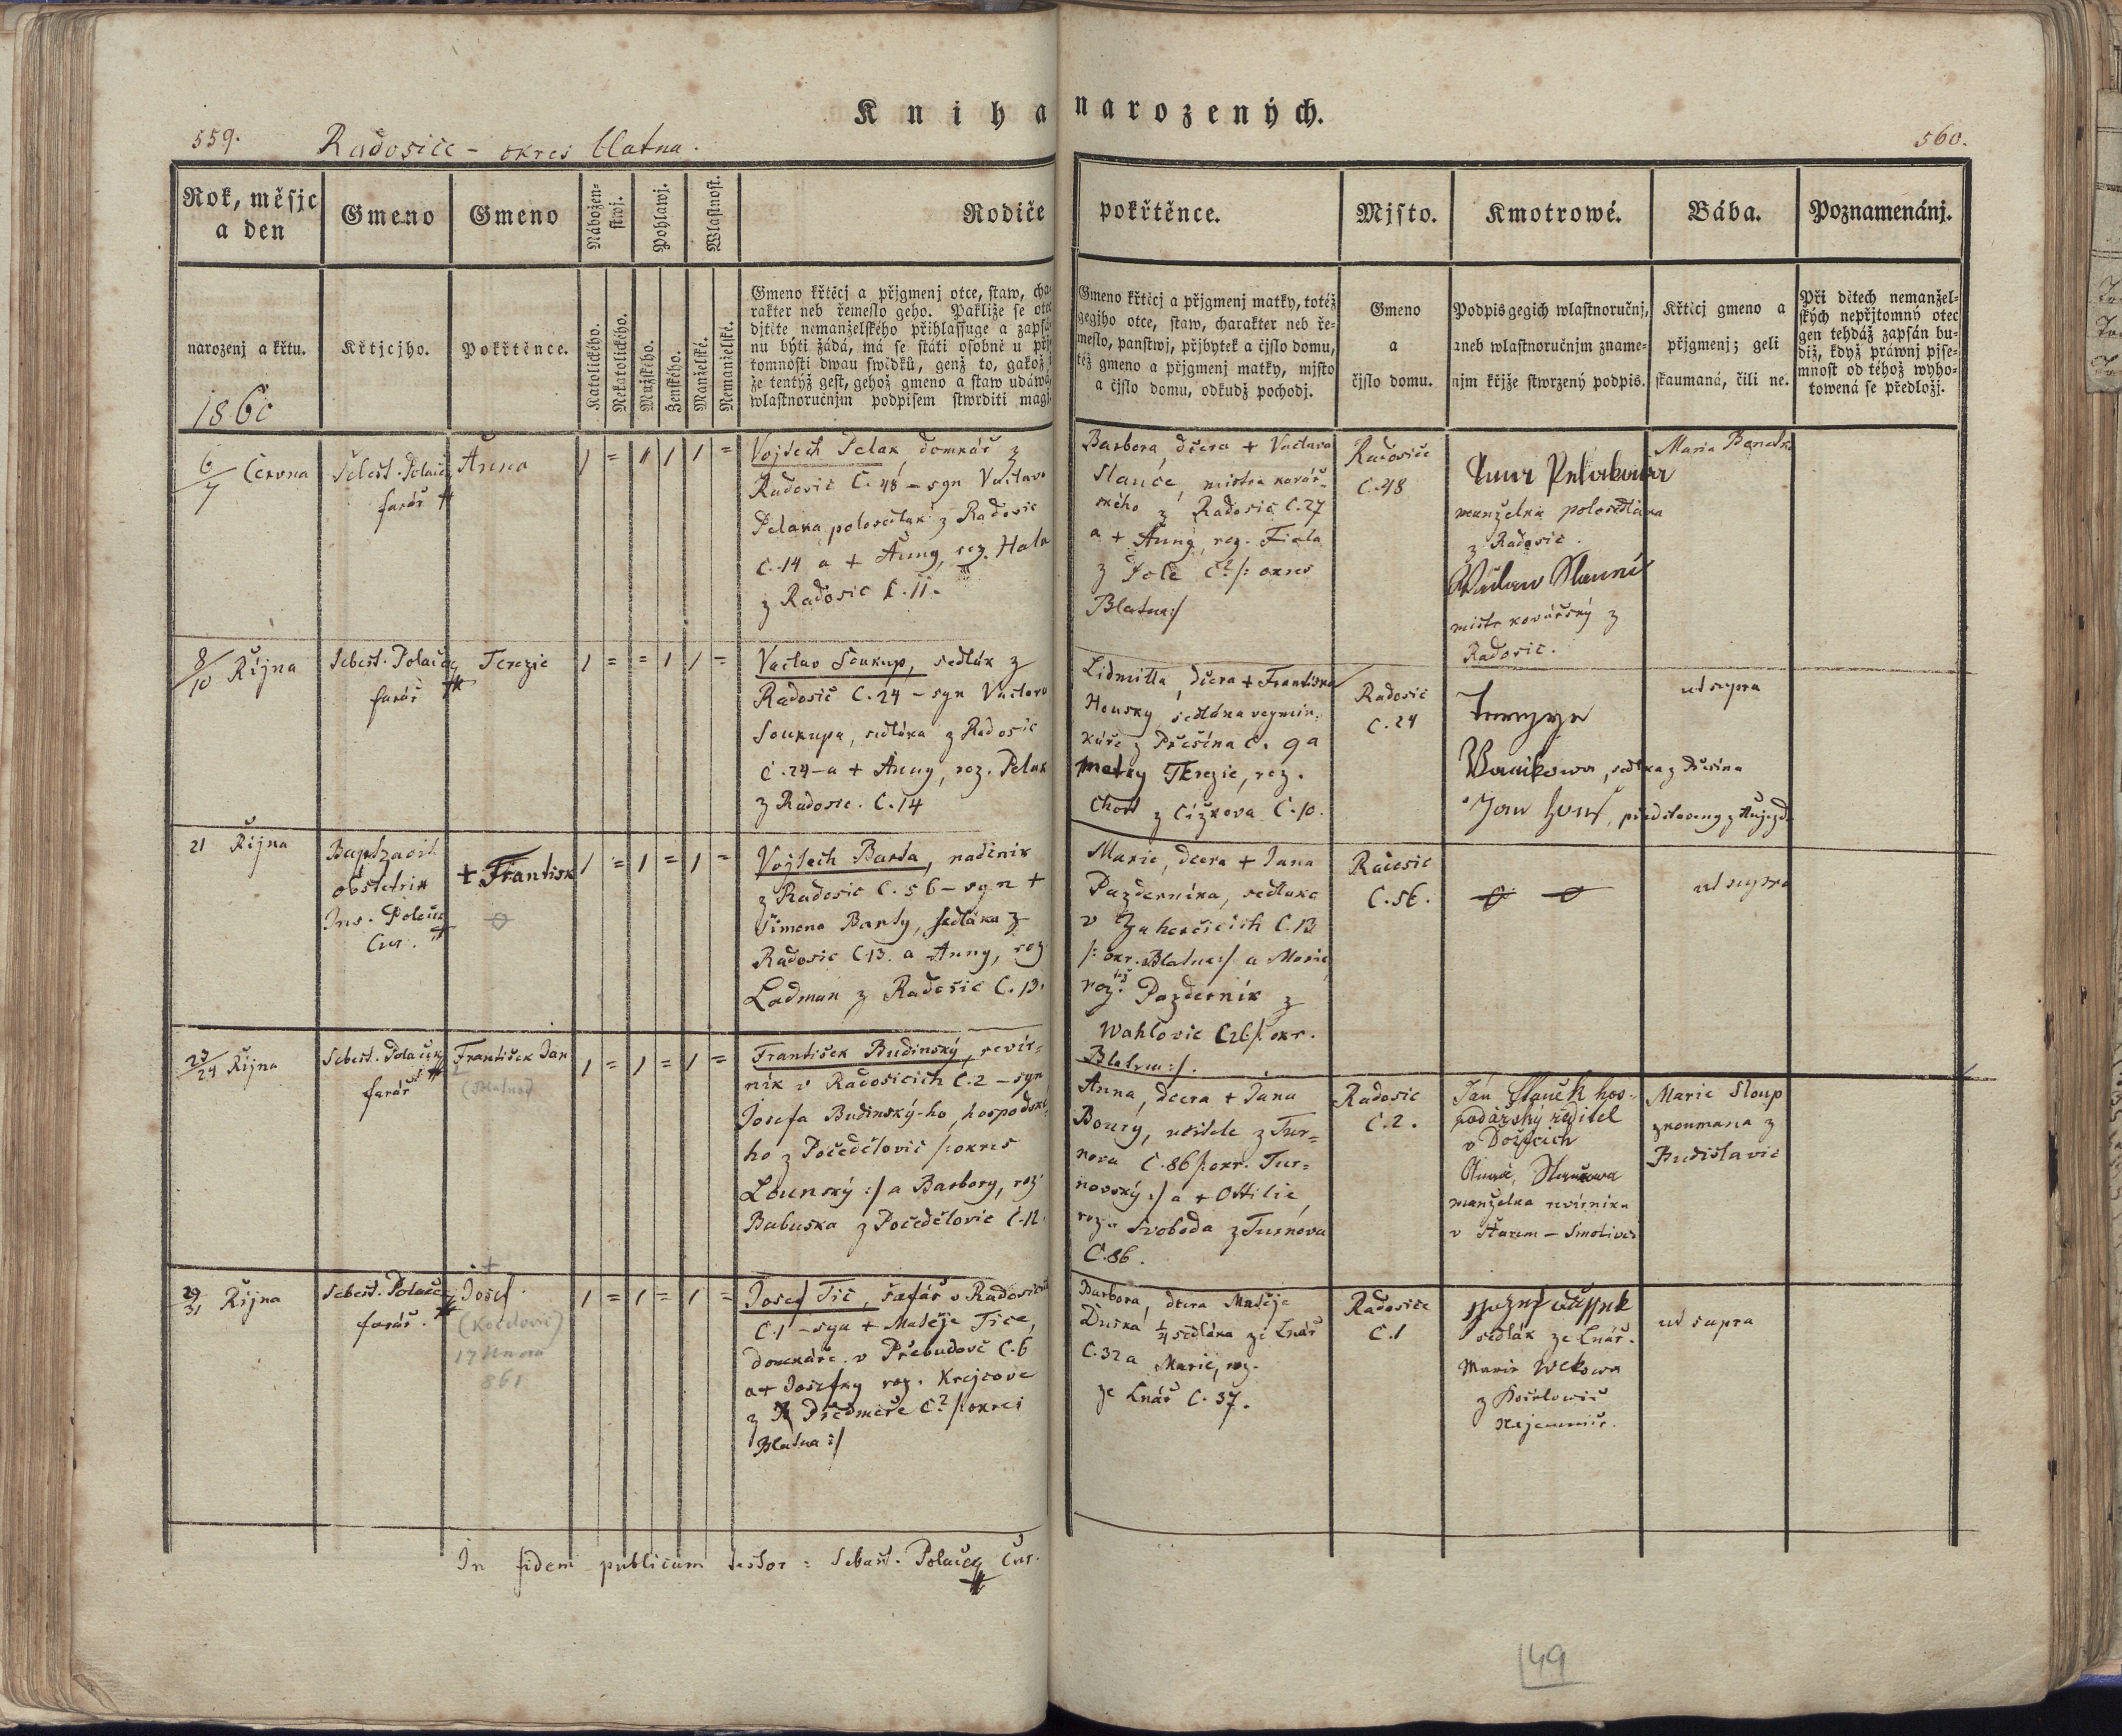 Kniha narozených.
559.
Radošice - okres Blatna.
560.
Rok, měsjc
a den
Gmeno
Gmeno
Nábožen-
stwj.
Pohlawj.
Wlastnost.
Rodiče
pokřtěnce.
Mjsto.
Kmotrowé.
Bába.
Poznamenánj.
narozenj a křtu.
Křtjcjho.
Pokřtěnce.
Katolického.
Nekatolického.
Mužského.
Ženského.
Manželské.
Nemanželské.
Gmeno křtěcj a přjgmenj otce, staw, cha-
rakter neb řemeslo geho. Pakliže se otec
djtěte nemanželského přihlassuge a zapsá-
nu býti žádá, má se státi osobně u přj-
tomnosti dwau swědků, genž to, gakož i
že tentýž gest, gehož gmeno a staw udáwá,
wlastnoručnjm podpisem stwrditi magj.
Gmeno křtěcj a přjgmenj matky, totéž
gegjho otce, staw, charakter neb ře-
meslo, panstwj, přjbytek a čjslo domu,
též gmeno a přjgmenj matky, mjsto
a čjslo domu, odkudž pocházj.
Gmeno
a
čjslo domu.
Podpis gegich wlastnoručnj,
aneb wlastnoručnjm zname-
njm křjže stwrzený podpis.
Křtěcj gmeno a
přjgmenj; geli
skaumaná, čili ne.
Při dětech nemanžel-
ských nepřjtomný otec
gen tehdáž zapsán bu-
diž, když práwnj pjse-
mnost od téhož wyho-
towená se předložj.
1860
6/7 Června
Šebest. Polaček
farář
Anna
Vojtech Pelak domkář z
Radosic Č. 48 - syn Vaclava
Pelaka polosedlak z Radosic
č. 14 a + Anny, roz. Hala
z Radosic č. 11.
Barbora, dcera + Vaclava
Slance, mistra kovář-
ského z Radosic č. 27
a + Anny, roz. Fiala
z Pole č? /: okres
Blatna:/
Radosice
č. 48
Anna Pelakowa
manzelka polosedlaka
z Radosic.
Waclaw Slanec
mistr kovářský z
Radosic.
Maria
8/10 Října
Šebest. Polaček
farář
Terezie
Vaclav Soukup, sedlák z
Radosic Č. 24 - syn Vaclava
Soukupa, sedláka z Radosic
č. 24 - a + Anny, roz. Pelak
z Radosic. č. 14
Lidmilla, dcera + Frantiska
Housky sedláka vejmin-
káře z Předsína č. 9 a
matky Terezie, roz.
z Čížkova č. 10.
Radosic
č. 24
Terezye
Jan
ut supra
21 Října
Baptzavit
obstetrix
Ins. Polaček
Cur.
+ Frantisk
Vojtech Barta, nadenik
z Radosic č. 56 - syn +
Šimona Barty, sedláka z
Radosic č 13. a Anny, roz
Ladman z Radosic č. 13.
Marie, dcera + Jana
Pazdernika, sedlaka
v Zahorčicich č. 13
/: okr. Blatna:/ a Marie
roz. též Pazdernik z
Wahlovic č 26 /: okr.
Blatna:/.
Radosic
č. 56.
ut supra
23/24 Října
Šebest. Polaček
farář
František Jan
František Budinský, revír-
nik v Radosicich č. 2 - syn
Josefa Budinský-ho, hospodské-
ho z Počedělovic /: okres
Lounský :/ a Barbory, roz.
Babuska z Počedělovic č. 12.
Anna, dcera + Jana
Boury, učitele z Tur-
nova č. 86 /: okr. Tur-
novský :/ a + Ottilie,
roz. Svoboda z Turnova
č. 86.
Radosic
č. 2.
Jan Slanček hos-
podářský ředitel
v Dožicích
Anna,
manželka revírnika
v Starem - Smolivci
Marie Sloup
zkoumana z
Budislavic
29/31 Října
Šebest. Polaček
farář.
+
Josef.
17 Unora
861
Josef Tic, šafář v Radosicich
č. 1 - syn + Matěje Tice,
domkáře v Přebudově č. 6
a + Josefky roz. Krejcove
z Předmíře č? /: okres
Blatna :/
Barbora, dcera Matěje
Duška 1/4 sedláka ze Lnář
č. 32 a Marie, roz.
ze Lnář č. 37.
Radosice
č. 1
sedlák ze Lnář.
Marie
ut supra
In fidem publicam testor : Sebast. Polaček Cur.
149